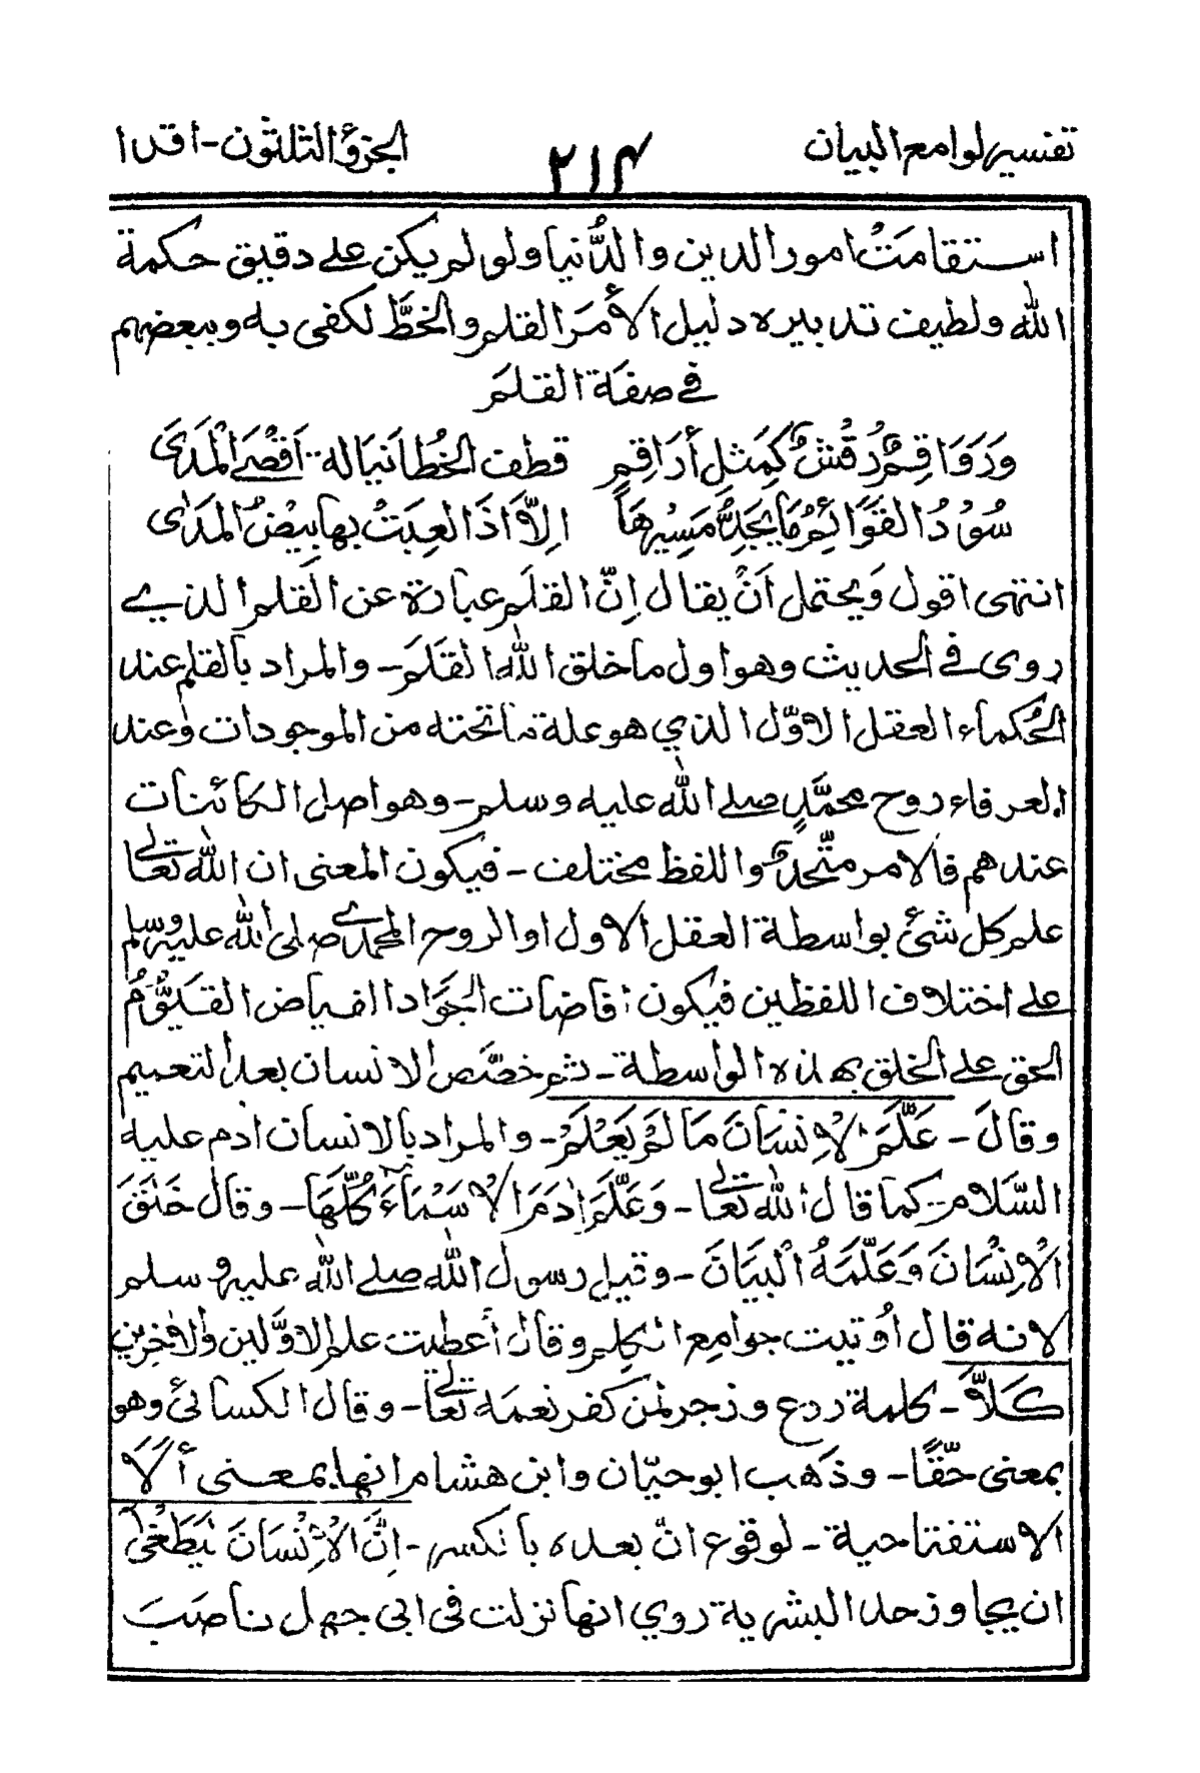 تفسير لوامع البيان
٢١٤
الجزؤ الثلثون-اقرا
استقامَتْ امور الدين والدُّنيا ولو لم يكن على دقيق حكمة
الله ولطيف تدبيره دليل الا أمَرَ القلم والخطَّ لكفى به وببعضهم
في صفة القلمَ
وَرَوَاقِمٌ رُقْشٌ كَمَثلِ أرَاقِمِ قطف الخُطا نَيَالة اَقْصَى الْمَدَى
سُوْدُ القَوَائِمِ مَا يَجِدُّ مَسِيْرهَا اِلاَّ اذَا لَعِبَتْ بها بِيْضُ المَدَى
انتهى اقول وَيحتمل اَنْ يقال اِنَّ القلَم عبارة عن القلم الذي
روى في الحديث وهو اول ما خلق الله القَلَمَ- والمراد بالقلم عند
الحُكماء العقل الاوّل الذي هو علة ما تحته من الموجودات وعند
العرفاء روح محمَّدٍ صلى الله عليه وسلم- وهو اصل الكائنات
عندهم فالامر متّحدٌ واللفظ مختلف- فيكون المعنى ان الله تعالى
علم كل شئ بواسطة العقل الاول او الروح المحمدي صلى الله عليه وسلم
على اختلاف اللفظين فيكون افاضات الجَوَاد الفياض القَيُّوْمُ
الحق على الخلق بهذه الواسطة- ثم خصَّص الانسان بعد التعميم
وقالَ- عَلَّمَ الْاِنسَانَ مَا لَمْ يَعْلَمْ- والمراد بالانسان ادم عليه
السَّلام- كما قال الله تعالى- وَعَلَّمَ اٰدَمَ الْاَسْمَاءَ كُلَّهَا- وقال خَلَقَ
الْاِنْسَانَ وَعَلَّمَهُ الْبَيَانَ- وقيل رسول الله صلى الله عليه وسلم
لانه قال اُوتيت جوامِع الكلم وقال أعطيت علم الاوَّلين والاٰخرين
كَلاَّ- كلمة ردع وزجر لمن كفر نعمه تعالى- وقال الكسائي وهو
بمعنى حَقًّا- وذَهب ابو حيّان وابن هشام انها بمعنى أَلَا
الاستفتاحية- لوقوع انّ بعده بالكسر- اِنَّ الْاِنْسَانَ لَيَطْغٰى
ان يجاوز حد البشرية روي انها نزلت في ابي جهل ناصَبَ